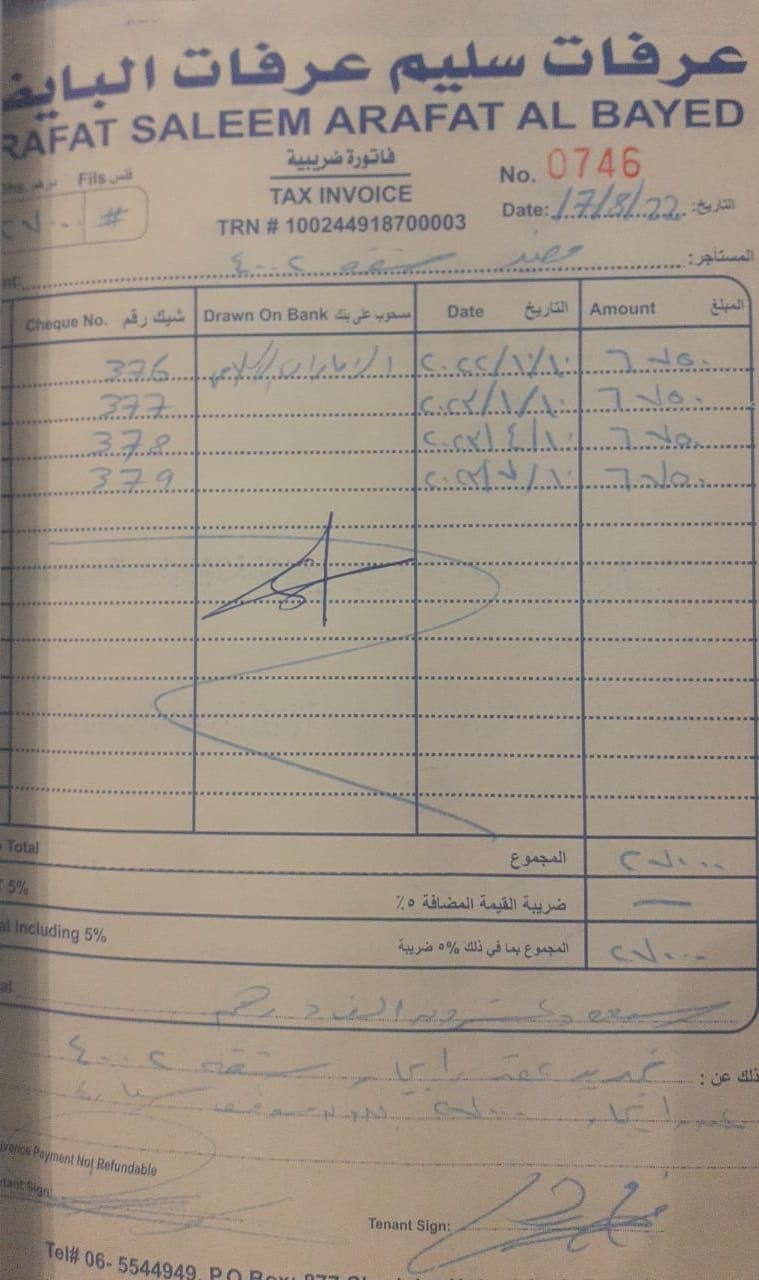 عرفات سليم عرفات البايض
RAFAT SALEEM ARAFAT AL BAYED
فاتورة ضريبية
TAX INVOICE
TRN # 100244918700003
No. 0746
Date: 17/8/22 التاريخ:
Dhs. درهم Fils فلس
٢٧٠٠٠ #
المستأجر: شقه ٤٠٠٢
Cheque No. شيك رقم Drawn On Bank مسحوب على بنك Date التاريخ Amount المبلغ
376 ٢٠٢٢/١٠/١٠ ٦٧٥٠
377 ٢٠٢٣/١/١٠ ٦٧٥٠
378 ٢٠٢٣/٤/١٠ ٦٧٥٠
379 ٢٠٢٣/٧/١٠ ٦٧٥٠
Total المجموع ٢٧٠٠٠
5% ضريبة القيمة المضافة ٥٪ —
al Including 5% المجموع بما في ذلك %٥ ضريبة ٢٧٠٠٠
al سبعه وعشرون الف درهم
ذلك عن : تجديد عقد شقه ٤٠٠٢
٢٧٠٠٠
vance Payment Not Refundable
tant Sign:
Tenant Sign:
Tel# 06- 5544949, P.O Box: